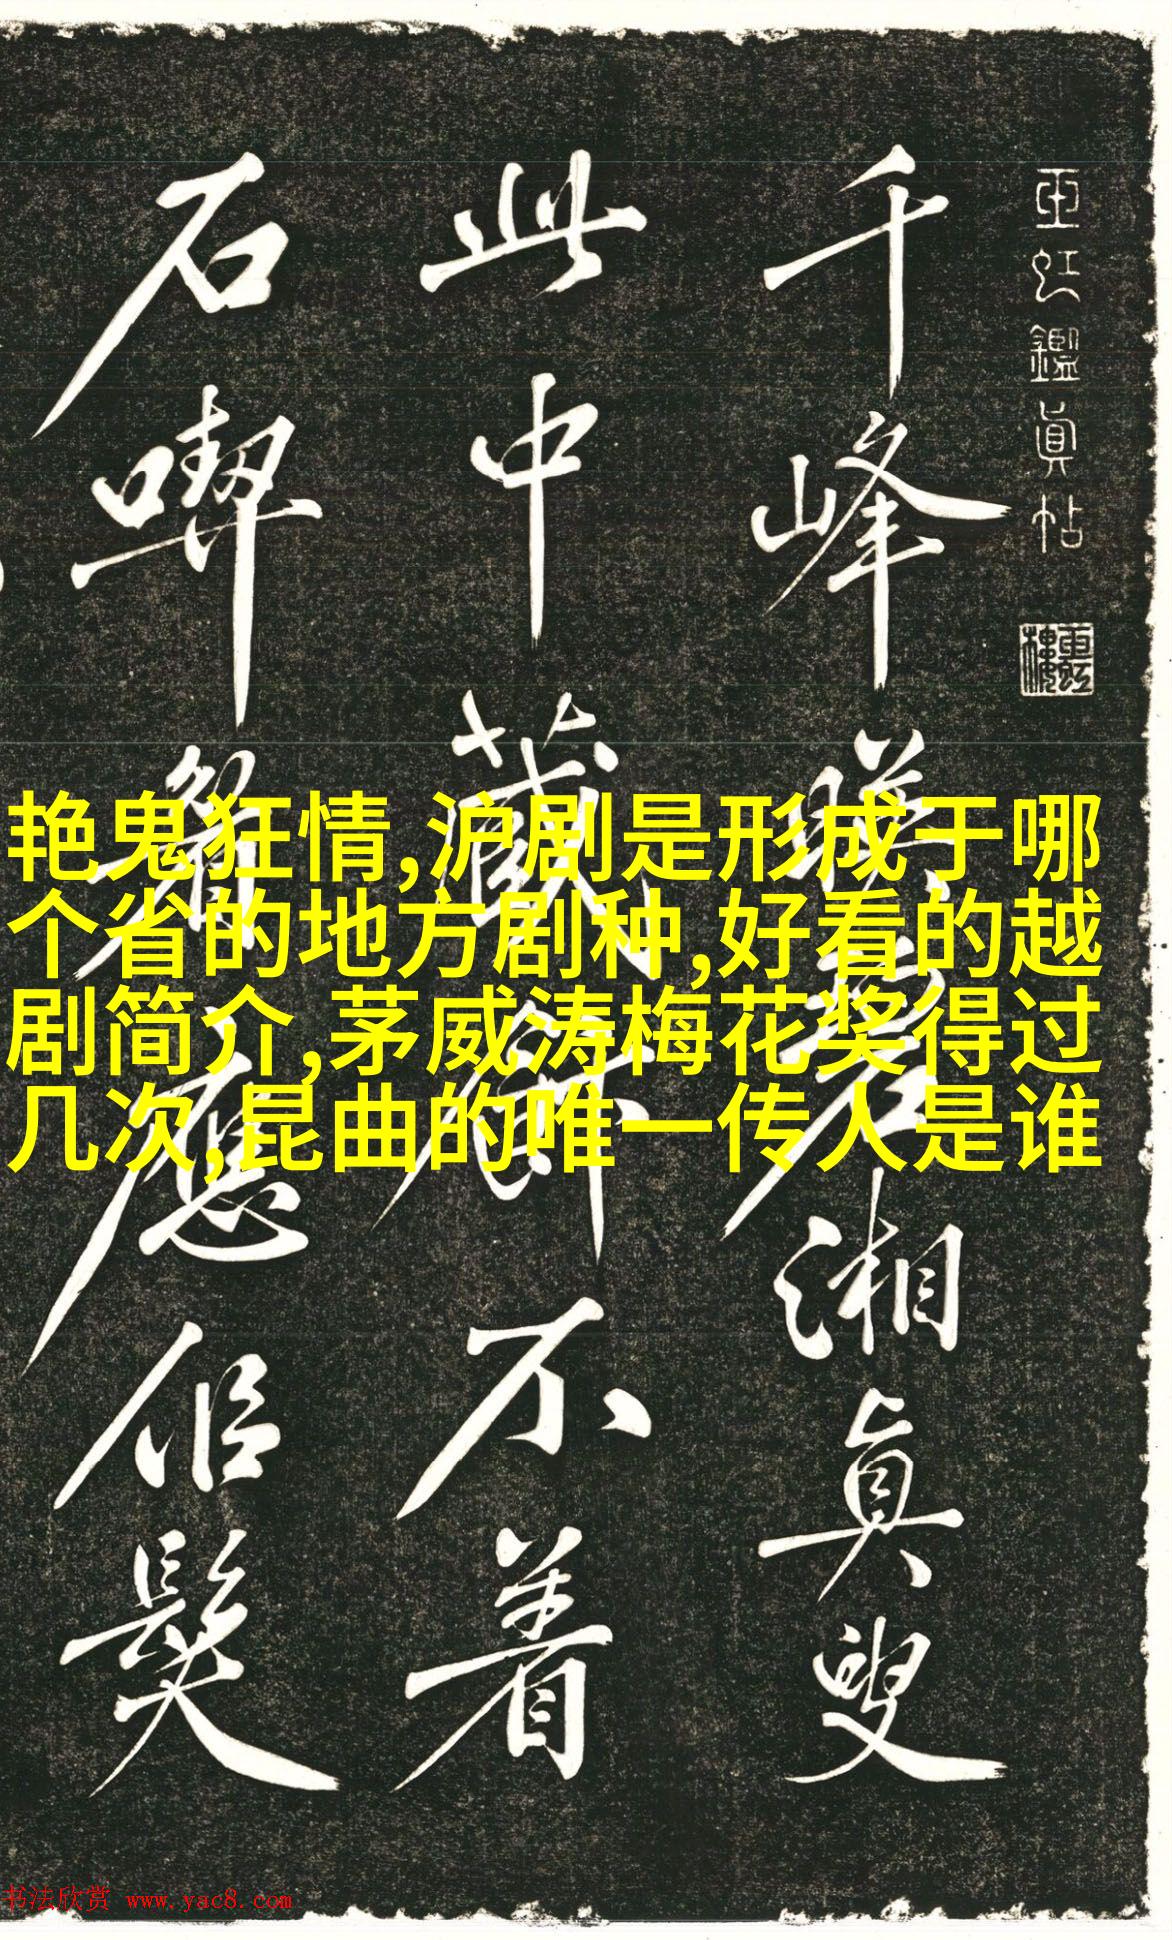 玉虹鑑真帖
玉虹樓
千峰暎碧湘真叟
此中藏餅不着
石喫眉應佀髮
艳鬼狂情,沪剧是形成于哪
个省的地方剧种,好看的越
剧简介,茅威涛梅花奖得过
几次,昆曲的唯一传人是谁
书法欣赏 www.yac8.com